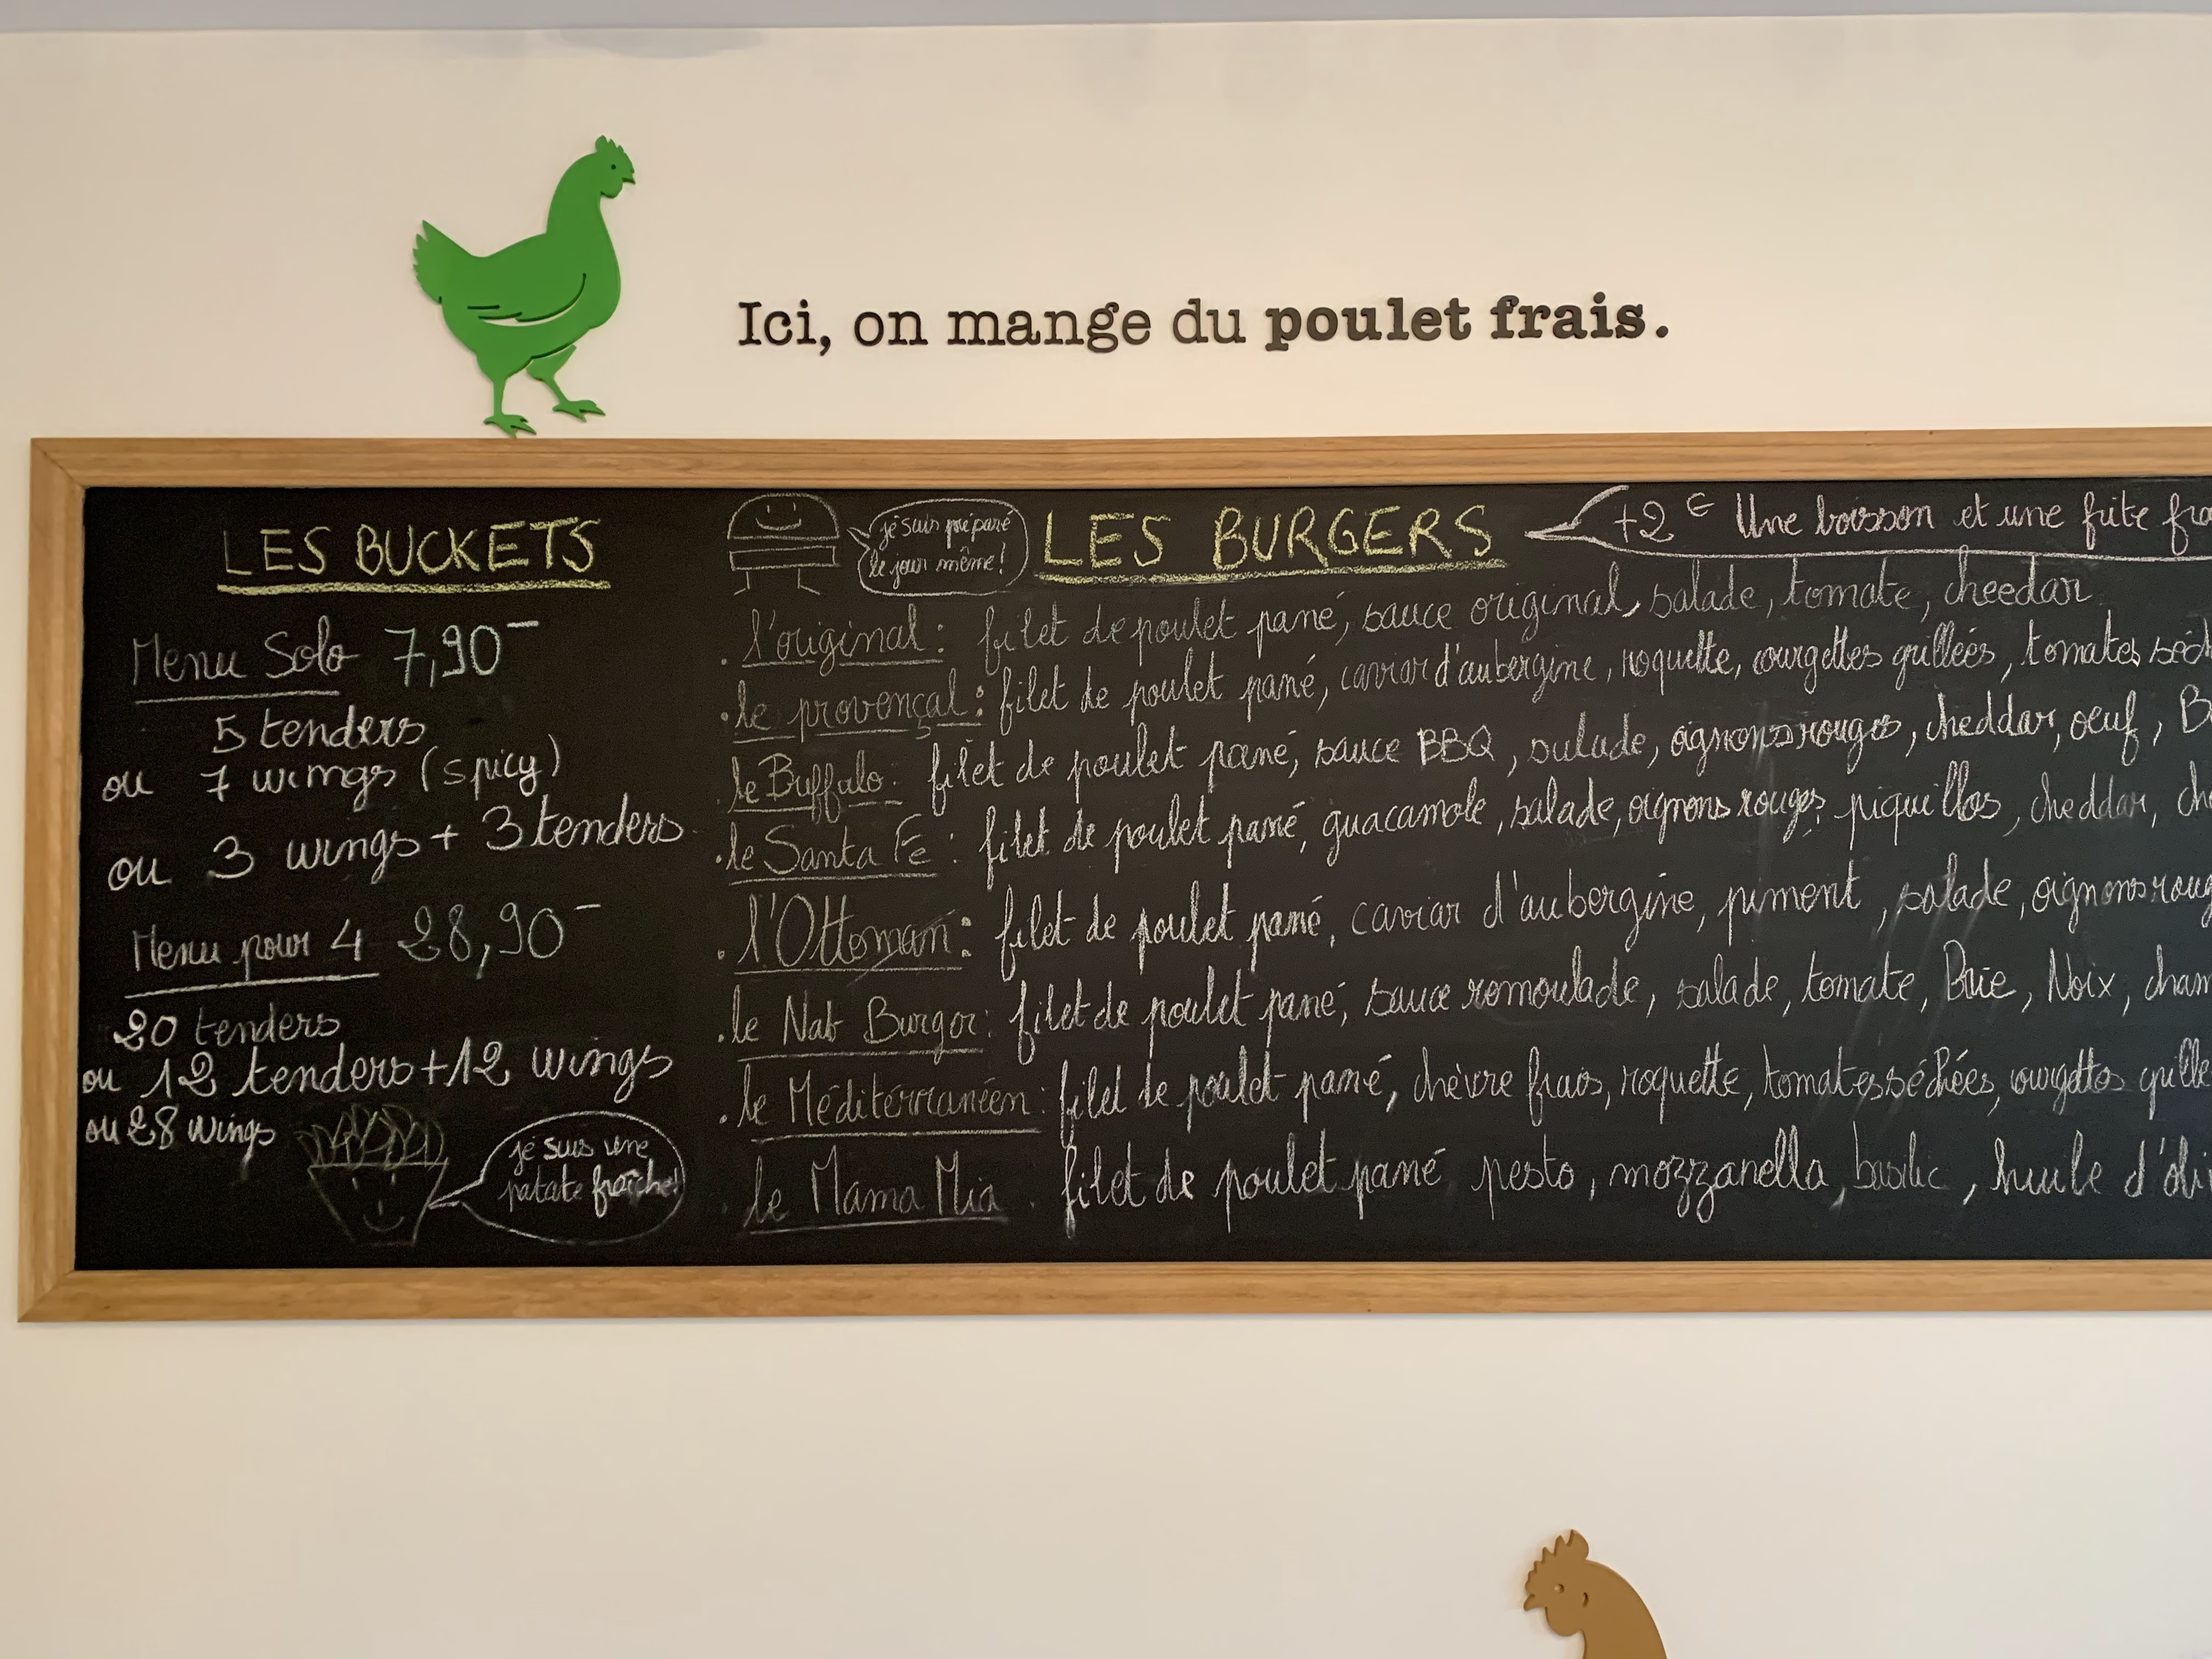 Ici, on mange du poulet frais.
LES BUCKETS
Menu Solo 7,90
5 tenders
ou 7 wings (spicy)
ou 3 wings + 3 tenders
Menu pour 4 28,90
20 tenders
ou 12 tenders + 12 wings
ou 28 wings
je suis une
patate fraîche!
je suis préparé
le jour même!
LES BURGERS
+2€ Une boisson et une frite
. l'original : filet de poulet pané, sauce original, salade, tomate, cheedar
. le provençal : filet de poulet pané, caviar d'aubergine, roquette, courgettes grillées, tomates
. le Buffalo : filet de poulet pané, sauce BBQ, salade, oignons rouges, cheddar, oeuf,
. le Santa Fe : filet de poulet pané, guacamole, salade, oignons rouges, piquillos, cheddar,
. l'Ottoman : filet de poulet pané, caviar d'aubergine, piment, salade, oignons
. le Nab Burger : filet de poulet pané, sauce remoulade, salade, tomate, Brie, Noix,
. le Méditérranéen : filet de poulet pané, chèvre frais, roquette, tomates séchées, courgettes
. le Mama Mia . filet de poulet pané pesto, mozzarella, basilic, huile